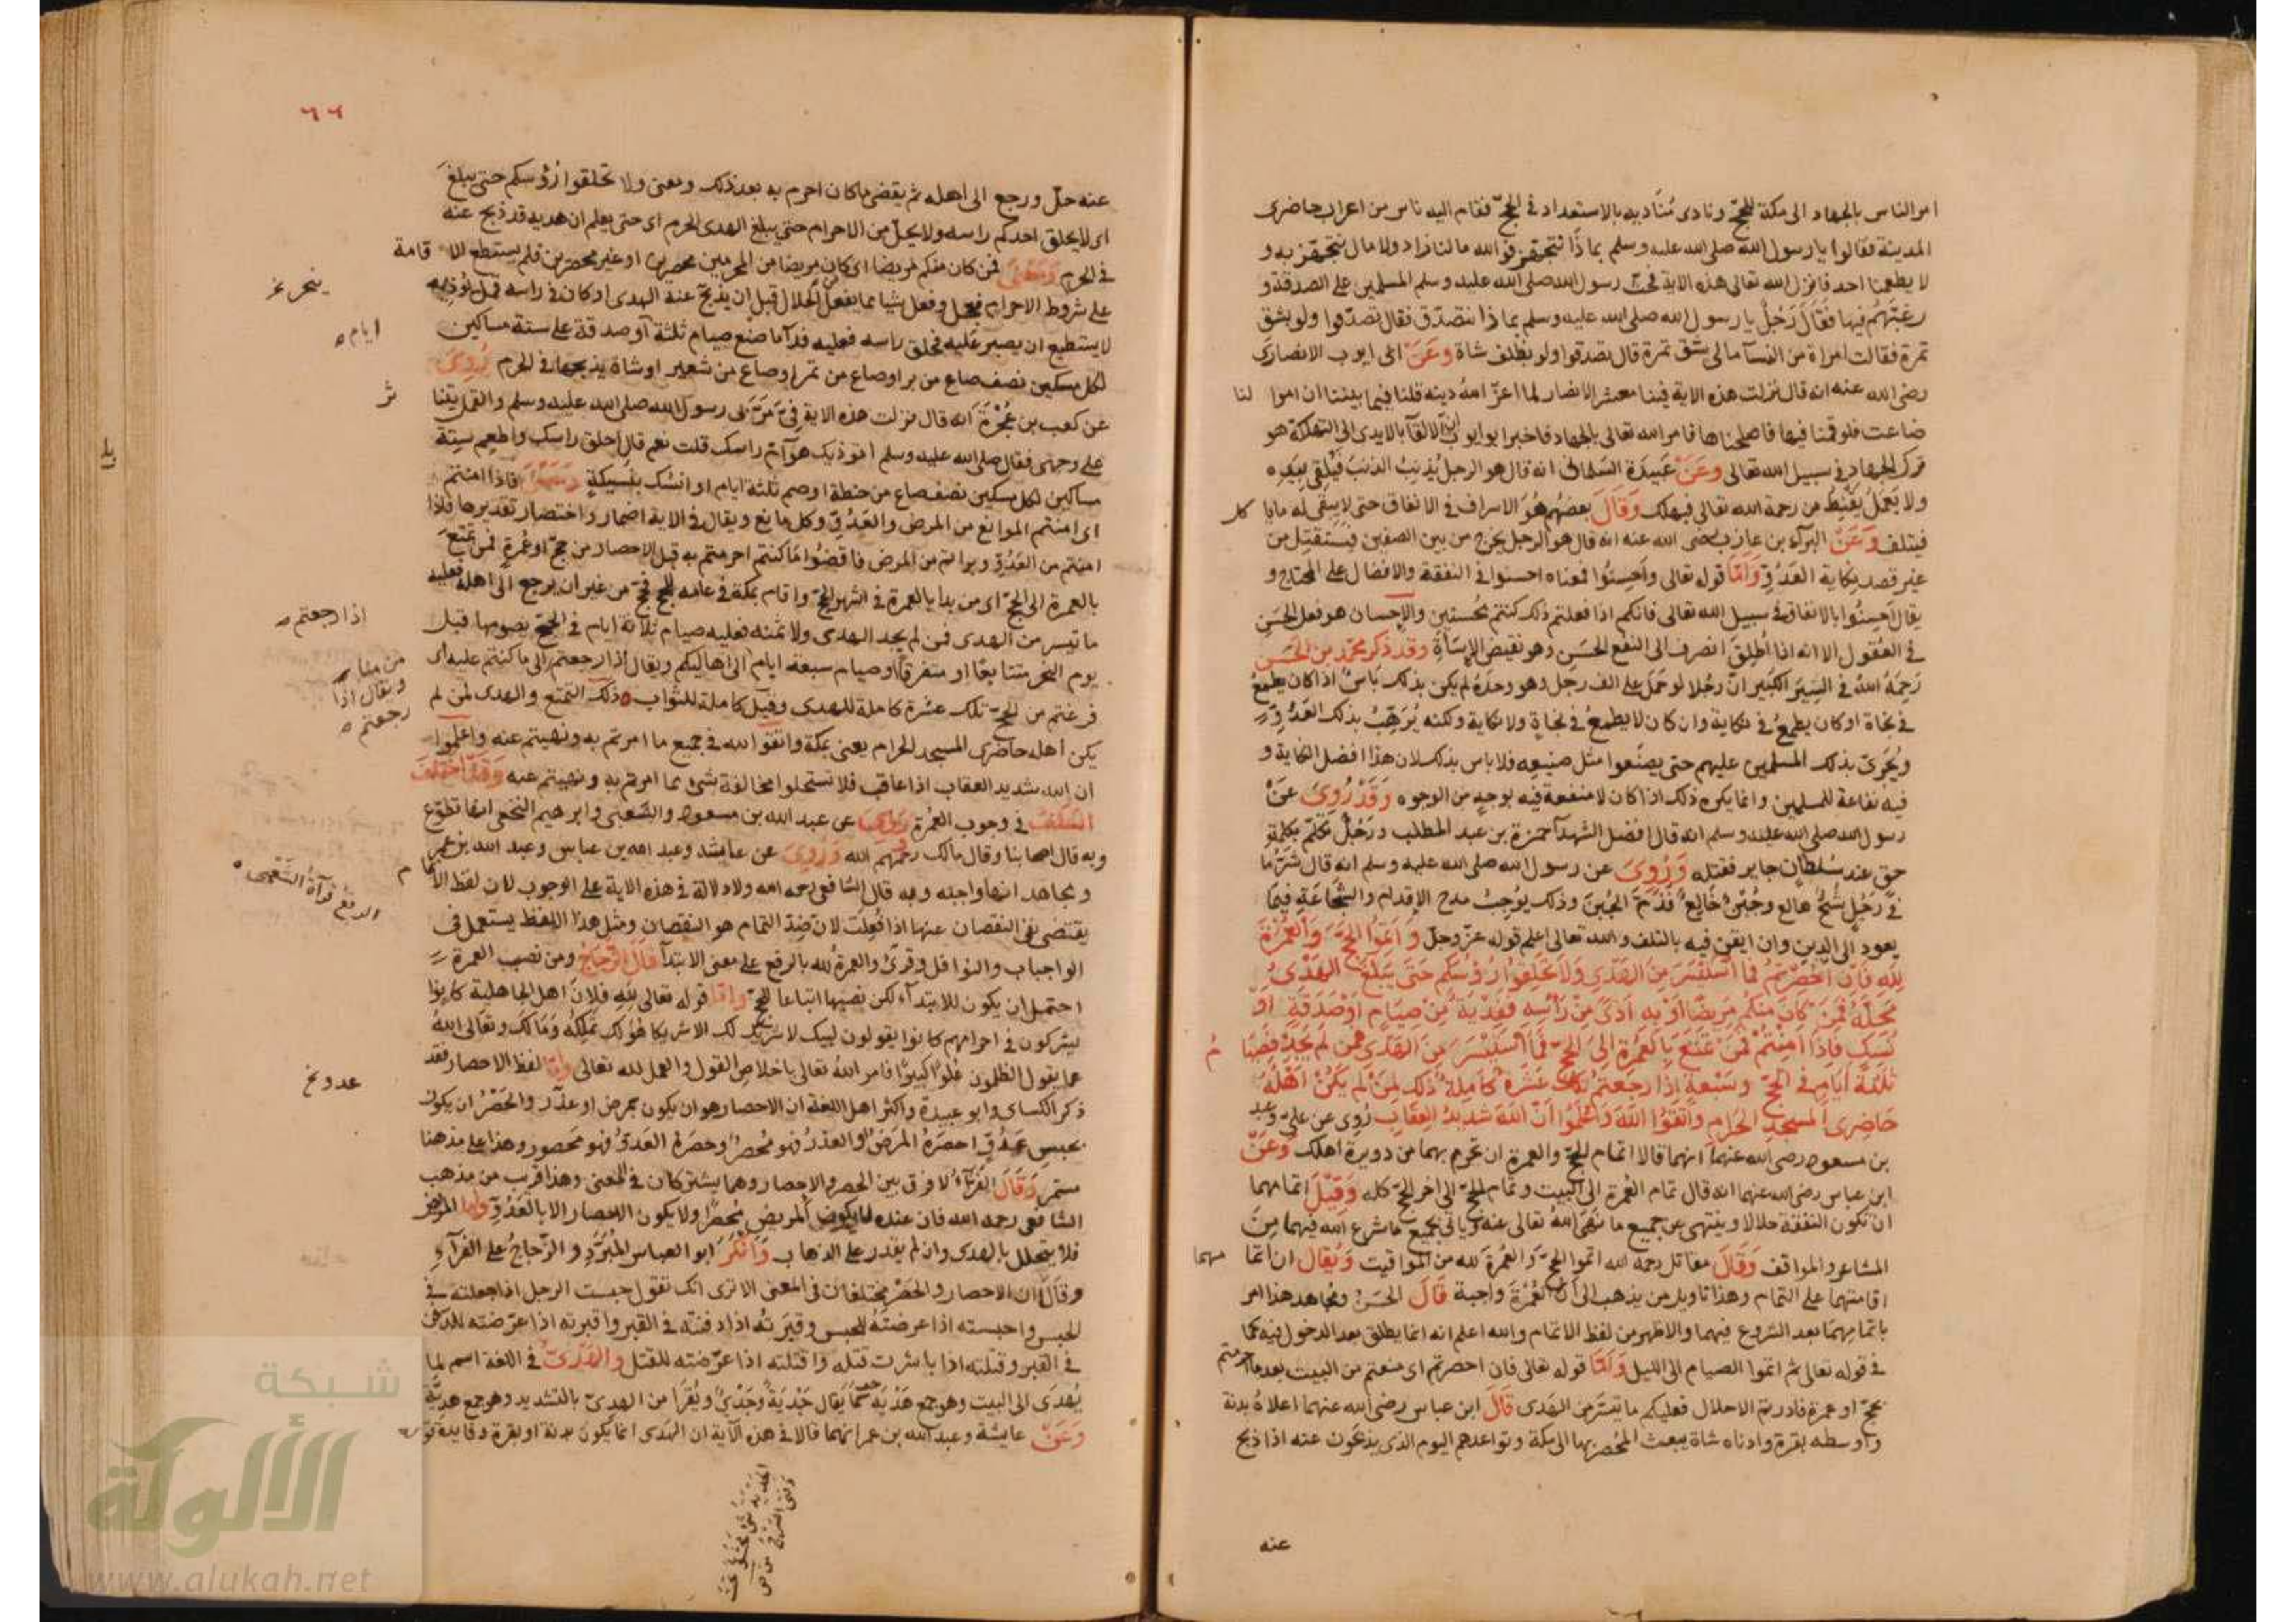 امر الناس بالجهاد الى مكة للحج ونادى مناديه بالاستعداد في الحج فقام اليه ناس من اعراب حاضرى
المدينة فقالوا يا رسول الله صلى الله عليه وسلم بماذا نتجهز فوالله مالنا زاد ولا مال نتجهز به و
لا يطعمنا احد فانزل الله تعالى هذه الاية فحث رسول الله صلى الله عليه وسلم المسلمين على الصدقة و
رغبتهم فيها فقال رجل يا رسول الله صلى الله عليه وسلم بماذا نتصدق فقال تصدقوا ولو بشق
تمرة فقالت امراة من النسآ مالى بشق تمرة قال تصدقوا ولو بظلف شاة وعن ابى ايوب الانصارى
رضى الله عنه انه قال نزلت هذه الاية فينا معشر الانصار لما اعز الله دينه قلنا فيما بيننا ان اموا لنا
ضاعت فلو قمنا فيها فاصلحناها فامر الله تعالى بالجهاد فاخبر ابو ايوب ان الالقآ بالايدى الى التهلكة هو
ترك الجهاد في سبيل الله تعالى وعن عبيدة السلمانى انه قال هو الرجل يذنب الذنب فيلقى بيده
ولا يعمل يقنط من رحمة الله تعالى فيهلك وقال بعضهم هو الاسراف في الانفاق حتى لا يبقى له مايا كل
فيتلف وعن البرآء بن عازب رضى الله عنه انه قال هو الرجل يخرج من بين الصفين فيستقتل من
غير قصد نكاية العدو واما قوله تعالى واحسنوا فمعناه احسنوا في النفقة والافضال على المحتاج و
يقال احسنوا بالانفاق في سبيل الله تعالى فانكم اذا فعلتم ذلك كنتم محسنين والاحسان هو فعل الحسن
في العقول الا انه اذا اطلق انصرف الى النفع الحسن وهو نقيض الاسآءة وقد ذكر محمد بن الحسن
رحمه الله في السير الكبير ان رجلا لو حمل على الف رجل وهو وحده لم يكن بذلك باس اذا كان يطمع
في نجاة او كان يطمع في نكاية وان كان لا يطمع في نجاة ولا نكاية ولكنه يرهب بذلك العدو
ويجرى بذلك المسلمين عليهم حتى يصنعوا مثل صنيعه فلا باس بذلك لان هذا افضل النكاية و
فيه نفاعة للمسلمين وانما يكره ذلك اذا كان لا منفعة فيه بوجه من الوجوه وقد روى عن
رسول الله صلى الله عليه وسلم انه قال افضل الشهدآ حمزة بن عبد المطلب ورجل تكلم بكلمة
حق عند سلطان جاير فقتله وروى عن رسول الله صلى الله عليه وسلم انه قال شر ما
في رجل شح هالع وجبن خالع فذم الجبن وذلك يوجب مدح الاقدام والشجاعة فيما
يعود الى الدين وان ايقن فيه بالتلف والله تعالى اعلم قوله عز وجل واتموا الحج والعمرة
لله فان احصرتم فما استيسر من الهدى ولا تحلقوا رؤسكم حتى يبلغ الهدى
محله فمن كان منكم مريضا او به اذى من رأسه ففدية من صيام او صدقة او
نسك فاذا امنتم فمن تمتع بالعمرة الى الحج فما استيسر من الهدى فمن لم يجد فصيا م
ثلثة ايام في الحج وسبعة اذا رجعتم تلك عشرة كاملة ذلك لمن لم يكن اهله
حاضرى المسجد الحرام واتقوا الله واعلموا ان الله شديد العقاب روى عن على وعبد
بن مسعود رضى الله عنهما انهما قالا اتمام الحج والعمرة ان تحرم بهما من دويرة اهلك وعن
ابن عباس رضى الله عنهما انه قال تمام العمرة الى البيت وتمام الحج الى اخر الحج كله وقيل اتمامهما
ان تكون النفقة حلالا وينتهى عن جميع ما نهى الله تعالى عنه وياتى بجميع ما شرع الله فيهما من
المشاعر والمواقف وقال مقاتل رحمه الله اتموا الحج والعمرة لله من المواقيت ويقال ان اتما مهما
اقامتهما على التمام وهذا تاويل من يذهب الى ان العمرة واجبة قال الحسن ومجاهد هذا امر
باتمامهما بعد الشروع فيهما والاظهر من لفظ الاتمام والله اعلم انه انما يطلق بعد الدخول فيه كما
في قوله تعالى ثم اتموا الصيام الى الليل واما قوله تعالى فان احصرتم اى منعتم من البيت بعد ما احرمتم
بحج او عمرة فاردتم الاحلال فعليكم ما تيسر من الهدى قال ابن عباس رضى الله عنهما اعلاه بدنة
واوسطه بقرة وادناه شاة يبعث المحصر بها الى مكة وتواعدهم اليوم الذى يذبحون عنه اذا ذبح
عنه
٦٦
عنه حل ورجع الى اهله ثم يقضى ما كان احرم به بعد ذلك ومعنى ولا تحلقوا رؤسكم حتى يبلغ
اى لا يحلق احدكم راسه ولا يحل من الاحرام حتى يبلغ الهدى الحرم اى حتى يعلم ان هديه قد ذبح عنه
في الحرم ومعنى فمن كان منكم مريضا اى كان مريضا من المحرمين محصرين او غير محصرين فلم يستطع الا قامة
على شروط الاحرام فعجل وفعل شيا مما يفعل الحلال قبل ان يذبح عنه الهدى او كان في راسه قمل تؤذيه
ينحر نخ
لا يستطيع ان يصبر عليه فحلق راسه فعليه فدآ ما صنع صيام ثلثة او صدقة على ستة مساكين
ايام
لكل مسكين نصف صاع من بر او صاع من تمر او صاع من شعير او شاة يذبحها في الحرم روى
عن كعب بن عجرة انه قال نزلت هذه الاية في مر بى رسول الله صلى الله عليه وسلم والقمل يتنا ثر
على وجهى فقال صلى الله عليه وسلم اتؤذيك هوآم راسك قلت نعم قال احلق راسك واطعم ستة
مساكين لكل مسكين نصف صاع من حنطة او صم ثلثة ايام او انسك بنسيكة ومعنى فاذا امنتم
اى امنتم الموانع من المرض والعدو وكل مانع ويقال في الاية اضمار واختصار تقديرها فاذا
امنتم من العدو وبراتم من المرض فاقضوا ما كنتم احرمتم به قبل الاحصار من حج او عمرة فمن تمتع
بالعمرة الى الحج اى من بدا بالعمرة في اشهر الحج واقام بمكة في عامه للحج فحج من غير ان يرجع الى اهله فعليه
ما تيسر من الهدى فمن لم يجد الهدى ولا ثمنه فعليه صيام ثلاثة ايام في الحج يصومها قبل
اذا رجعتم
يوم النحر متتابعا او متفرقا وصيام سبعة ايام الى اهاليكم ويقال اذا رجعتم الى ما كنتم عليه اى
فرغتم من الحج تلك عشرة كاملة للهدى وقيل كاملة للثواب ذلك التمتع والهدى لمن لم
ويقال اذا
رجعتم
يكن اهله حاضرى المسجد الحرام يعنى بمكة واتقوا الله في جميع ما امرتم به ونهيتم عنه واعلموا
ان الله شديد العقاب اذا عاقب فلا تستحلوا مخالفة شئ مما امرتم به ونهيتم عنه وقد اختلف
السلف في وجوب العمرة روى عن عبد الله بن مسعود والشعبى وابرهيم النخعى انها تطوع
وبه قال اصحابنا وقال مالك رحمهم الله وروى عن عايشة وعبد الله بن عباس وعبد الله بن عمر
ومجاهد انها واجبة وبه قال الشافعى رحمه الله ولا دلالة في هذه الاية على الوجوب لان لفظ الاتما م
يقتضى نفى النقصان عنها اذا فعلت لان ضد التمام هو النقصان ومثل هذا اللفظ يستعمل في
الرفع قرآة الشعبى
الواجبات والنوافل وقرئ والعمرة لله بالرفع على معنى الابتدآ قال الزجاج ومن نصب العمرة
احتمل ان يكون للابتدآء لكن نصبها اتباعا للحج واما قوله تعالى لله فلان اهل الجاهلية كانوا
يشركون في احرامهم كانوا يقولون لبيك لا شريك لك الا شريكا هو لك تملكه وما لك وتعالى الله
عما يقول الظلمون علوا كبيرا فامر الله تعالى باخلاص القول والعمل لله تعالى واما لفظ الاحصار فقد
ذكر الكساى وابو عبيدة واكثر اهل اللغة ان الاحصار هو ان يكون بمرض او عذر والحصر ان يكون
عدو نخ
بحبس عدو احصره المرض او العذر فهو محصر وحصره العدو فهو محصور وهذا على مذهبنا
مستمر وقال الفرآء لا فرق بين الحصر والاحصار وهما يشتركان في المعنى وهذا قريب من مذهب
الشافعى رحمه الله فان عنده لا يكون المريض محصرا ولا يكون الاحصار الا بالعدو واما المريض
فلا يتحلل بالهدى وان لم يقدر على الذهاب وانكر ابو العباس المبرد والزجاج على الفرآء
وقالا ان الاحصار والحصر مختلفان في المعنى الا ترى انك تقول حبست الرجل اذا جعلته في
الحبس واحبسته اذا عرضته للحبس وقبرته اذا دفنته في القبر واقبرته اذا عرضته للدفن
في القبر وقتلته اذا باشرت قتله واقتلته اذا عرضته للقتل والهدى في اللغة اسم لما
يهدى الى البيت وهو جمع هدية كما يقال جدية وجدى ويقرا من الهدى بالتشديد وهو جمع هدية
وعن عايشة وعبد الله بن عمر انهما قالا في هذه الآية ان الهدى انما يكون بدنة او بقرة وفايدة
شبكة
الألوكة
www.alukah.net